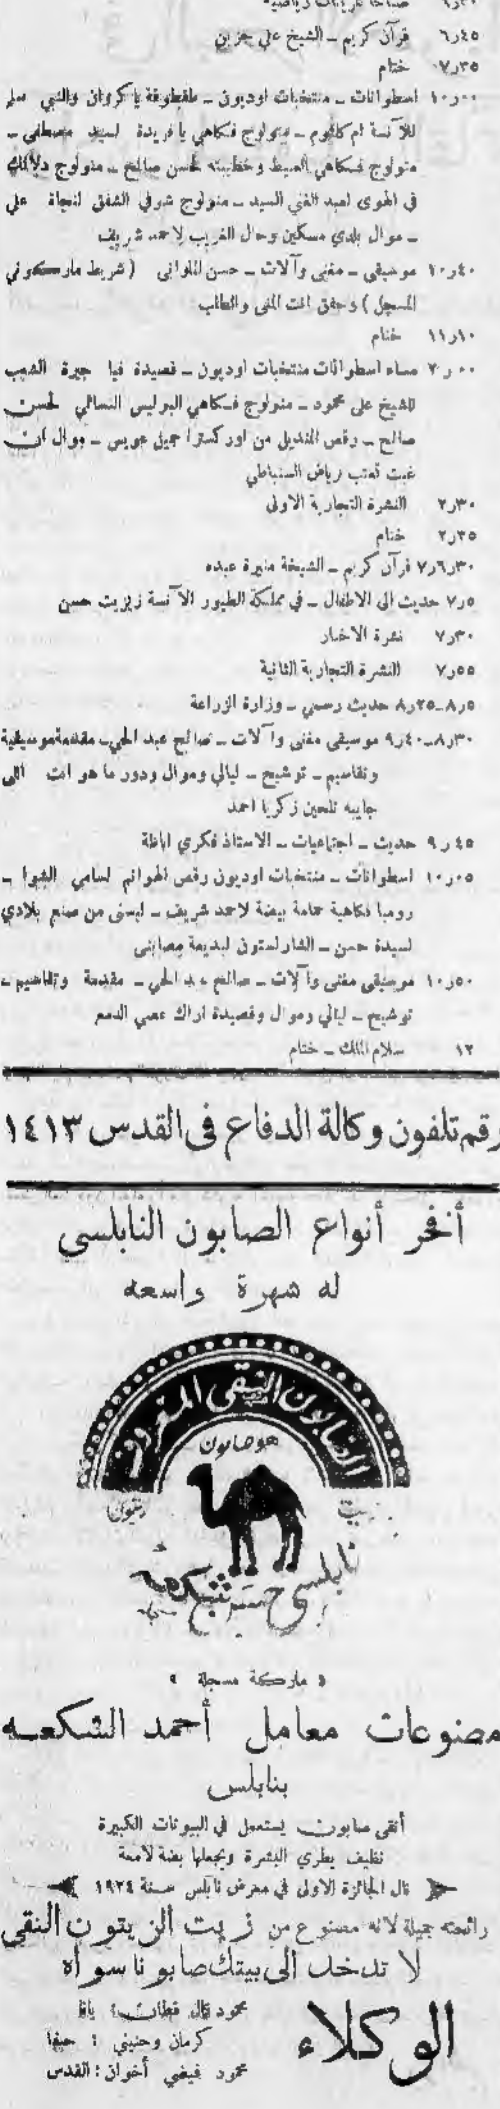 ٦٫٤٥ قرآن كريم ــ الشيخ علي حزين
٧٫٣٥ ختام
١٠٫٠٠ اسطوانات ــ منتخبات اوديون ــ طقطوقة يا كروان والنبي سلم
للآنسة ام كلثوم ــ منولوج فكاهي يا فريدة لسيد مصطفى ــ
منولوج فكاهي العبيط وخطيبته لحسن صالح ــ منولوج دلالك
في الهوى لعبد الغني السيد ــ منولوج شوفي الشفق لنجاة علي
ــ موال بلدي مسكين وحال الغريب لاحمد شريف
١٠٫٤٠ موسيقى ــ مغنى وآلات ــ حسن الملواني (شريط ماركوني
المسجل) وحقق انت المنى والطلب
١١٫١٠ ختام
٢٫٠٠ مساء اسطوانات منتخبات اوديون ــ قصيدة فيا جيرة الشعب
للشيخ علي محمود ــ منولوج فكاهي البوليس النسائي لحسن
صالح ــ رقص المنديل من اوركسترا جميل عويس ــ موال ان
غبت تعتب لرياض السنباطي
٢٫٣٠ النشرة التجارية الاولى
٢٫٣٥ ختام
٦٫٣٠ر٧ قرآن كريم ــ الشيخة منيرة عبده
٧٫٥ حديث الى الاطفال ــ في مملكة الطيور الآنسة زيزيت حسن
٧٫٣٠ نشرة الاخبار
٧٫٥٥ النشرة التجارية الثانية
٨٫٥ــ٨٫٢٥ حديث رسمي ــ وزارة الزراعة
٨٫٣٠ــ٩٫٤٠ موسيقى مغنى وآلات ــ صالح عبد الحي ــ مقدمة موسيقية
وتقاسيم ــ توشيح ــ ليالي وموال ودور ما هو انت اللي
جايبه تلحين زكريا احمد
٩٫٤٥ حديث ــ اجتماعيات ــ الاستاذ فكري اباظة
١٠٫٠٥ اسطوانات ــ منتخبات اوديون رقص الهوانم لسامي الشوا ــ
رومبا فكاهية حمامة بيضة لاحمد شريف ــ لبسني من صنع بلادي
لسيدة حسن ــ الشارلستون لبديعة مصابني
١٠٫٥٠ موسيقى مغنى وآلات ــ صالح عبد الحي ــ مقدمة وتقاسيم ــ
توشيح ــ ليالي وموال وقصيدة اراك عصي الدمع
١٢ سلام الملك ــ ختام
رقم تلفون وكالة الدفاع في القدس ١٤١٣
أفخر أنواع الصابون النابلسي
له شهرة واسعه
الصابون النقي المعروف
هو صابون
زيت زيتون
نابلسي
« ماركة مسجلة »
مصنوعات معامل أحمد الشكعه
بنابلس
أنقى صابون يستعمل في البيوتات الكبيرة
نظيف يطري البشرة ويجعلها بضة لامعة
نال الجائزة الاولى في معرض نابلس سنة ١٩٢٤
رائحته جميلة لانه مصنوع من زيت الزيتون النقي
لا تدخل الى بيتك صابونا سواه
الوكلاء
محمود نمر قطان : يافا
كرمان وحنيني : حيفا
محمود فيضي أخوان : القدس